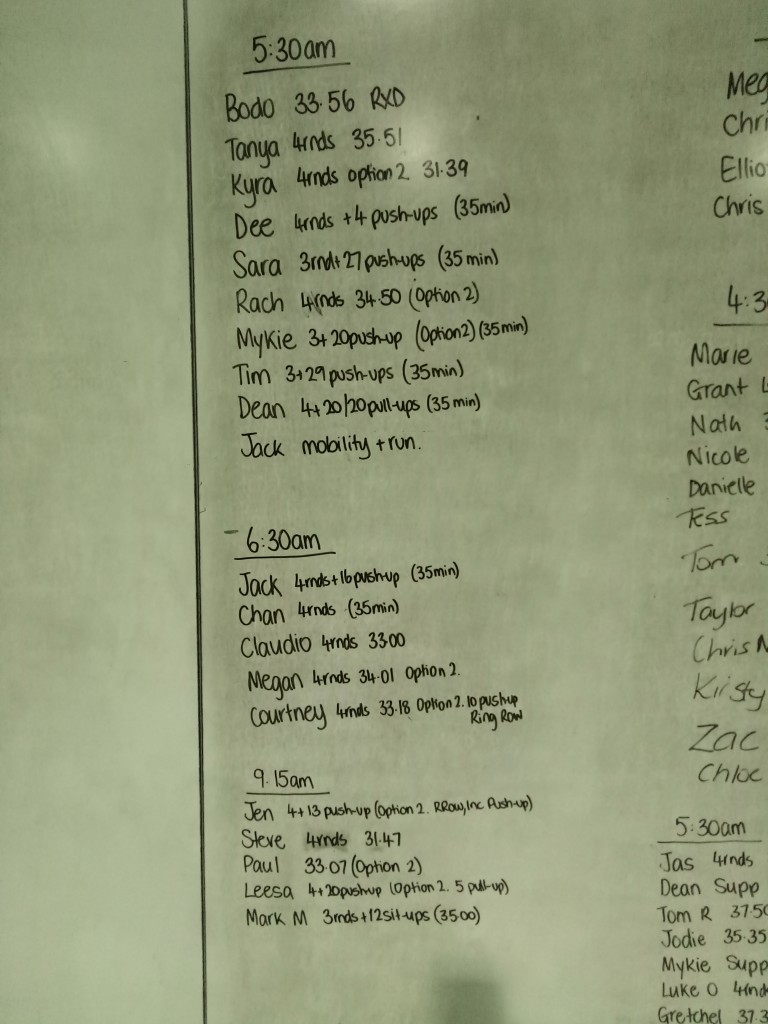 5:30am
Bodo 33.56 RXD
Tanya 4rnds 35.51
Kyra 4rnds option 2 31.39
Dee 4rnds +4 push-ups (35min)
Sara 3rnd+27push-ups (35min)
Rach 4rnds 34.50 (Option 2)
Mykie 3+20push-up (Option2) (35min)
Tim 3+29 push-ups (35min)
Dean 4+20/20pull-ups (35min)
Jack mobility +run.
6:30am
Jack 4rnds+16push-up (35min)
Chan 4rnds (35min)
Claudio 4rnds 33.00
Megan 4rnds 34.01 Option 2.
Courtney 4rnds 33.18 Option 2. 10 push-up
Ring Row
9.15am
Jen 4+13 push-up (Option 2. RRow, Inc Push-up)
Steve 4rnds 31.47
Paul 33.07 (Option 2)
Leesa 4+20push-up (Option 2. 5 pull-up)
Mark M 3rnds+12sit-ups (35.00)
Meg
Chri
Ellio
Chris
4:3
Marie
Grant
Nath
Nicole
Danielle
Tess
Tom
Taylor
Chris N
Kirsty
Zac
Chloe
5:30am
Jas 4rnds
Dean Supp
Tom R 37.50
Jodie 35.35
Mykie Supp
Luke O 4rnd
Gretchel 37.3